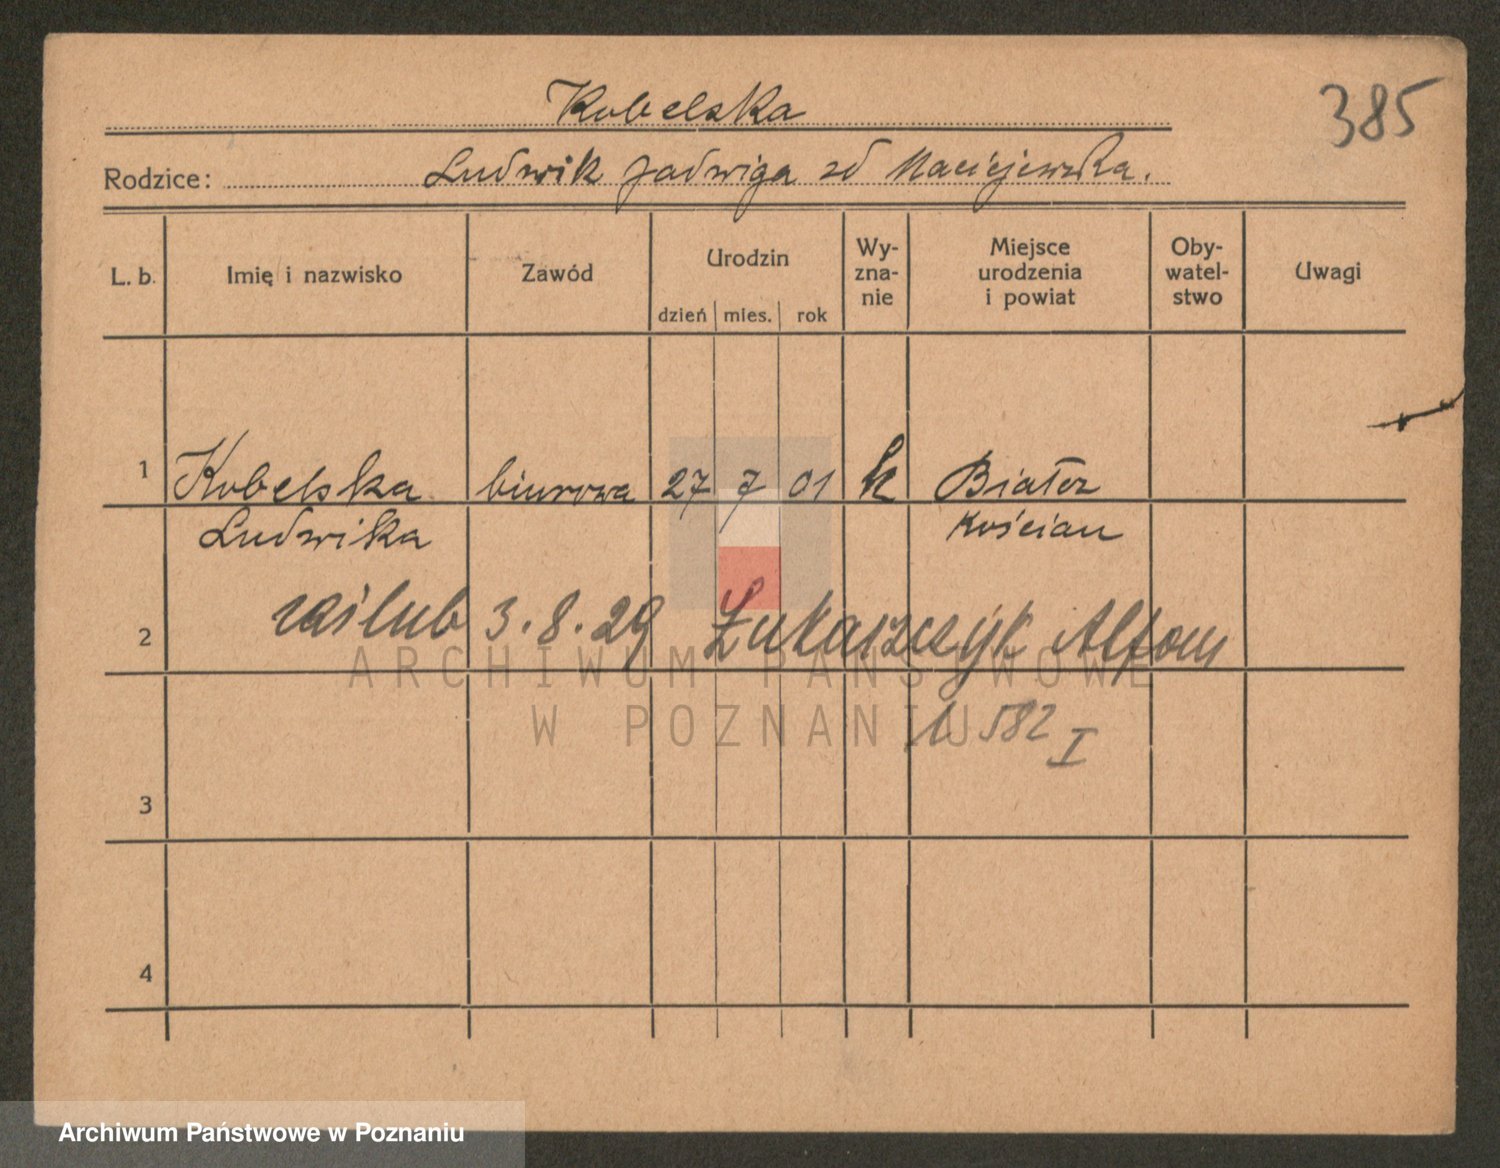 385
Kobelska
Rodzice: Ludwik Jadwiga zd Maciejewska.
L. b. Imię i nazwisko Zawód Urodzin dzień mies. rok Wy-zna-nie Miejsce urodzenia i powiat Oby-watel-stwo Uwagi
1 Kobelska biurowa 27 7 01 k Białcz
Ludwika Kościan
2 zaślub 3.8.29 Łukaszczyk Alfons
582 I
3
4
ARCHIWUM PAŃSTWOWE
W POZNANIU
Archiwum Państwowe w Poznaniu